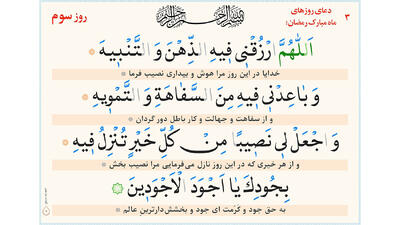 ۳
دعای روزهای
ماه مبارک رمضان؛
بسم الله الرحمن الرحیم
روز سوم
اَللّٰهُمَّ ارْزُقْنی فیهِ الذِّهْنَ وَ التَّنْبیهَ
خدایا در این روز مرا هوش و بیداری نصیب فرما
وَ باعِدْنی فیهِ مِنَ السَّفاهَةِ وَ التَّمْویهِ
و از سفاهت و جهالت و کار باطل دور گردان
وَ اجْعَلْ لی نَصیبًا مِنْ کُلِّ خَیْرٍ تُنْزِلُ فیهِ
و از هر خیری که در این روز نازل می‌فرمایی مرا نصیب بخش
بِجُودِکَ یا اَجْوَدَ الْاَجْوَدینَ
به حق جود و کرمت ای جود و بخشش‌دارترین عالم